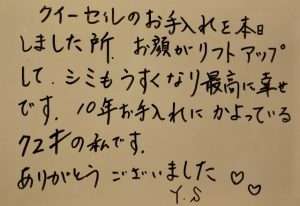 クイーセルのお手入れを本日
しました所、お顔がリフトアップ
して、シミもうすくなり最高に幸せ
です。10年お手入れにかよっている
クユキの私です。
ありがとうございました
Y.S ♡♡